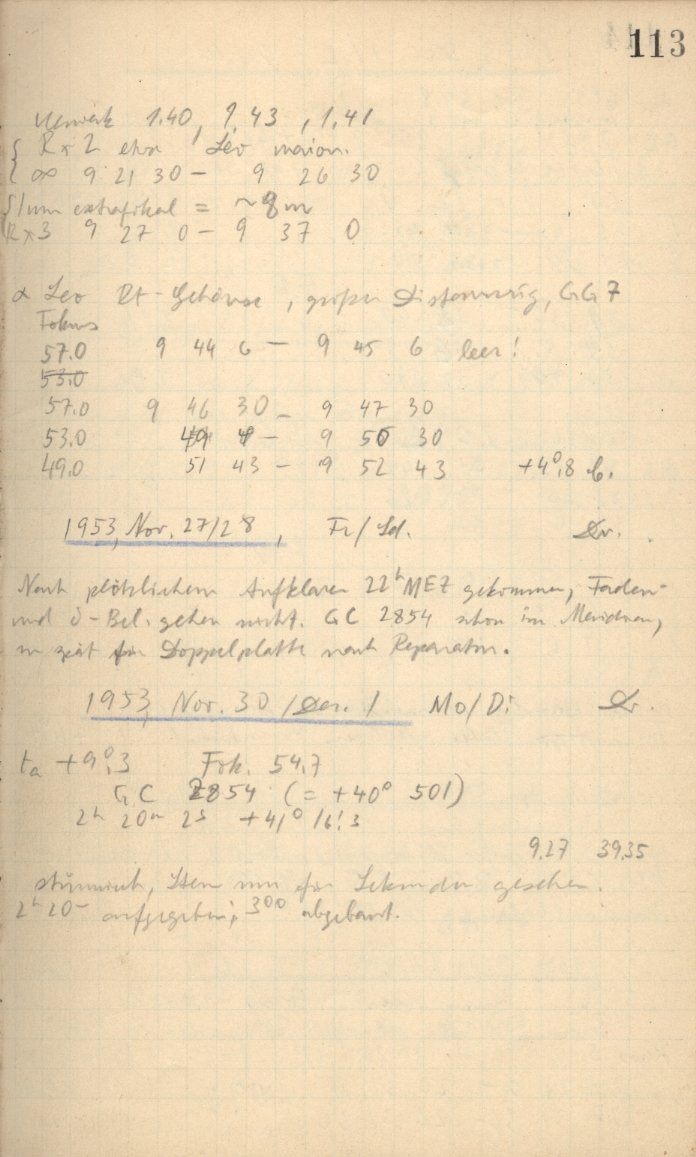 113
Uhrwerk 1.40, 1.43, 1.41
R x 2 etwa Leo maior.
∞ 9 21 30 - 9 26 30
extrafokal = ~8m
R x 3 9 27 0 - 9 37 0
α Leo Rt-Gehäuse, großer GG 7
Fokus
57.0 9 44 6 - 9 45 6 leer!
53.0
57.0 9 46 30 - 9 47 30
53.0 49 - 9 50 30
49.0 51 43 - 9 52 43 +4°,8 b.
1953, Nov. 27/28, Fr/Sd. Dr.
Nach plötzlichem Aufklaren 22h MEZ gekommen, Faden-
und δ-Bel. gehen nicht. GC 2854 schon im Meridian,
zu spät für Doppelplatte nach Reparatur.
1953 Nov. 30 / Dez. 1 Mo/Di Dr.
ta +9°,3 Fok. 54.7
GC 2854 (= +40° 501)
2h 20m 2s +41° 16!3
9.27 39.35
stürmisch, Stern nur für Sekunden gesehen.
2h 20m aufgegeben, 300 abgebaut.